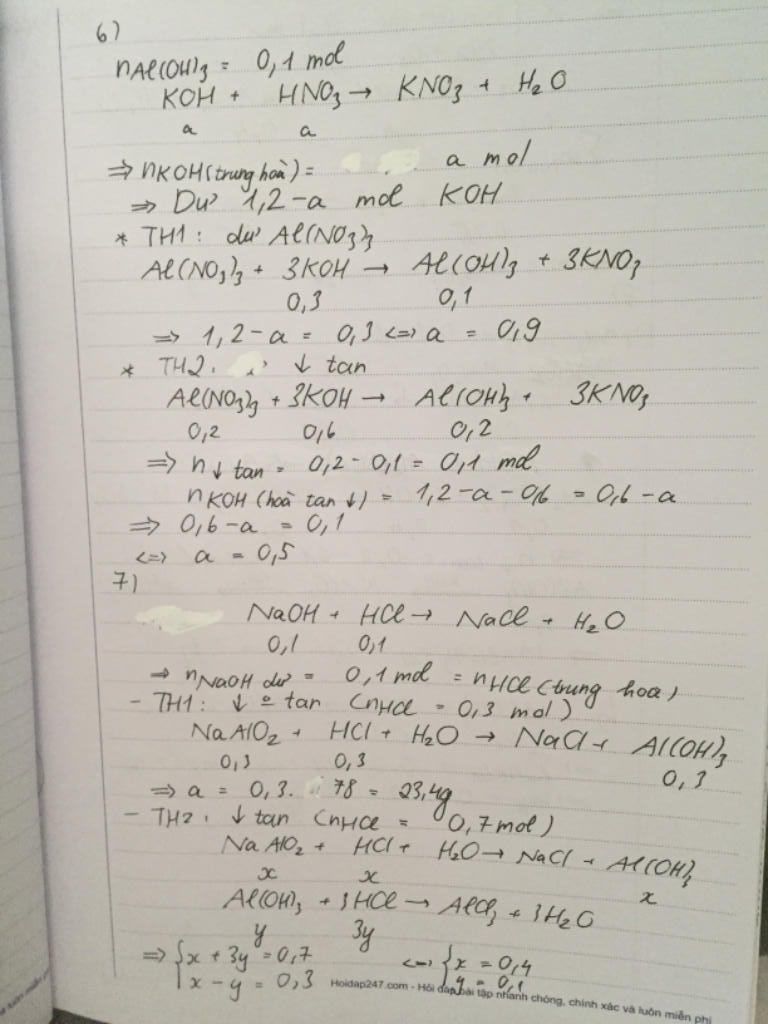 6)
nAl(OH)3 = 0,1 mol
KOH + HNO3 → KNO3 + H2O
a a
⇒ nKOH(trung hoà) = a mol
⇒ Dư 1,2-a mol KOH
* TH1: dư Al(NO3)3
Al(NO3)3 + 3KOH → Al(OH)3 + 3KNO3
0,3 0,1
⇒ 1,2-a = 0,3 <=> a = 0,9
* TH2: ↓ tan
Al(NO3)3 + 3KOH → Al(OH)3 + 3KNO3
0,2 0,6 0,2
⇒ n↓ tan = 0,2-0,1 = 0,1 mol
nKOH (hoà tan ↓) = 1,2-a-0,6 = 0,6-a
⇒ 0,6-a = 0,1
<=> a = 0,5
7)
NaOH + HCl → NaCl + H2O
0,1 0,1
⇒ nNaOH dư = 0,1 mol = nHCl (trung hoà)
- TH1: ↓ o tan (nHCl = 0,3 mol)
NaAlO2 + HCl + H2O → NaCl + Al(OH)3
0,3 0,3 0,3
⇒ a = 0,3. 78 = 23,4g
- TH2: ↓ tan (nHCl = 0,7mol)
NaAlO2 + HCl + H2O → NaCl + Al(OH)3
x x x
Al(OH)3 + 3HCl → AlCl3 + 3H2O
y 3y
⇒ { x + 3y = 0,7 <=> { x = 0,4
x - y = 0,3 y = 0,1
Hoidap247.com - Hỏi đáp bài tập nhanh chóng, chính xác và luôn miễn phí